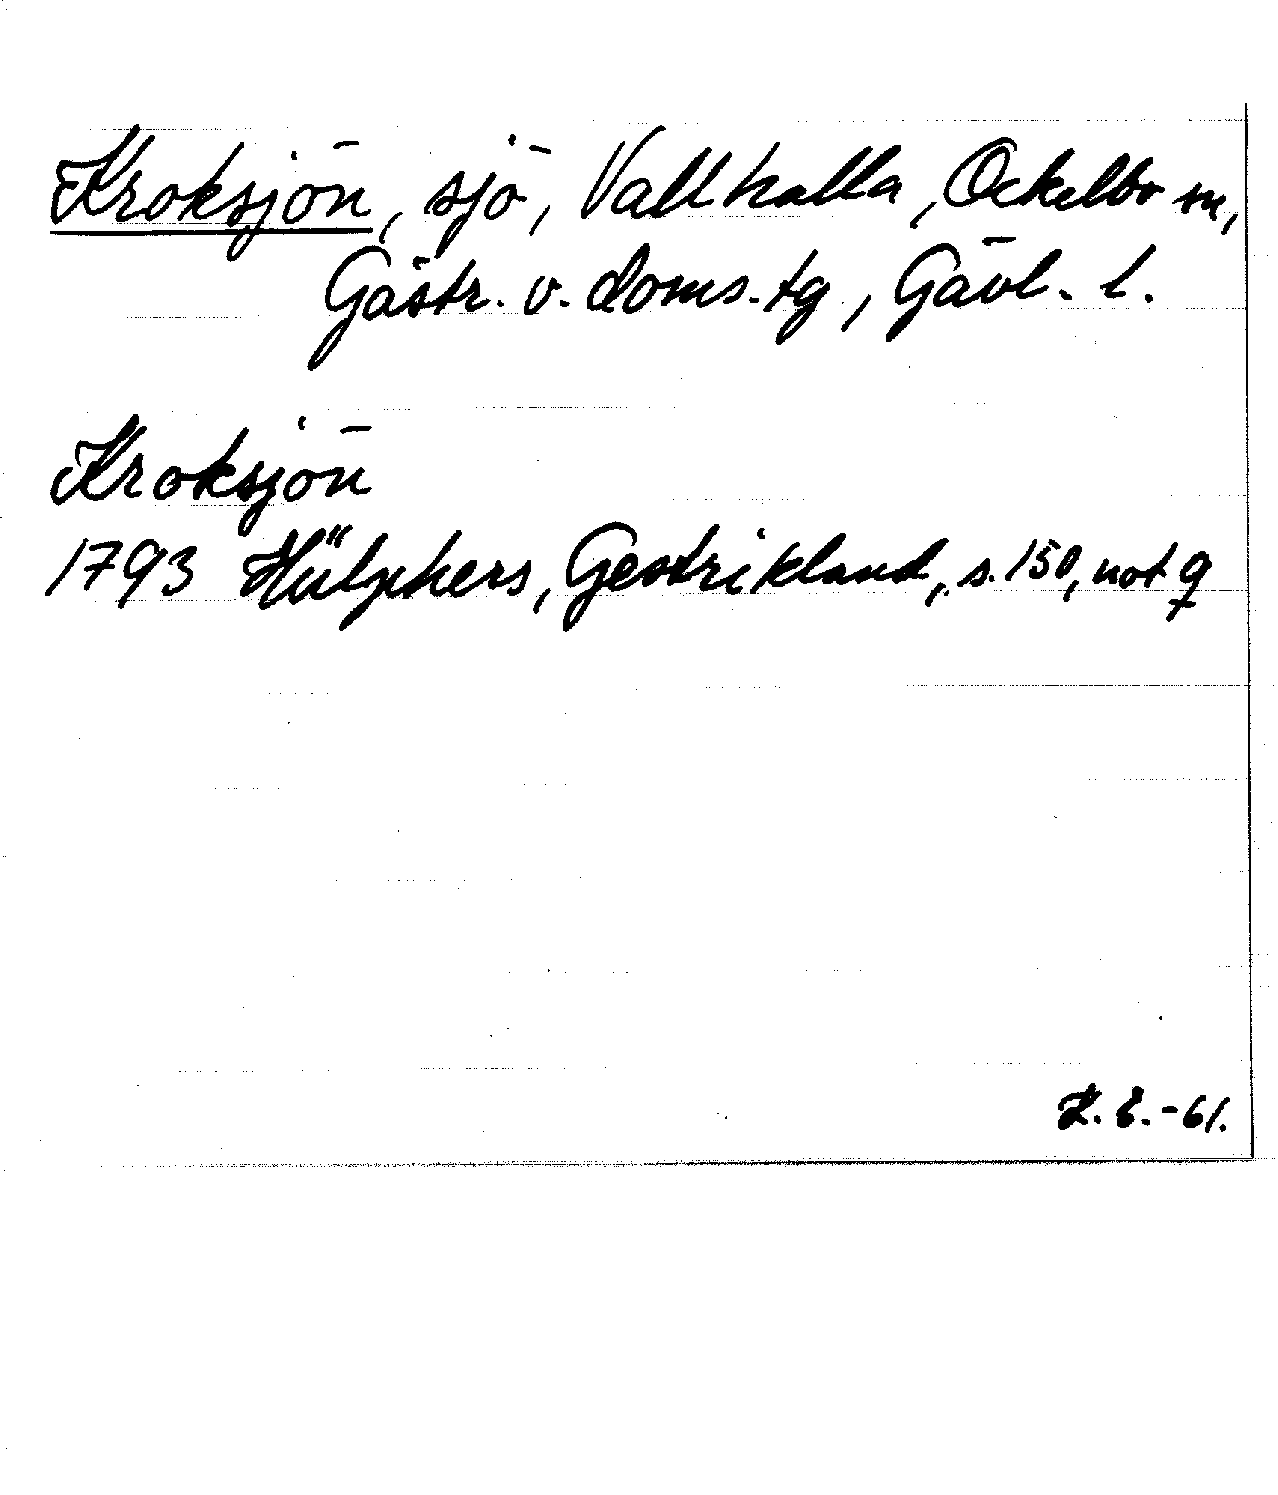 Kroksjön, sjö, Vallhalla, Ockelbo sn,
Gästr. v. doms.tg, Gävl. l.
Kroksjön
1793 Hülphers, Gestrikland, s. 150, not q
K. E. -61.